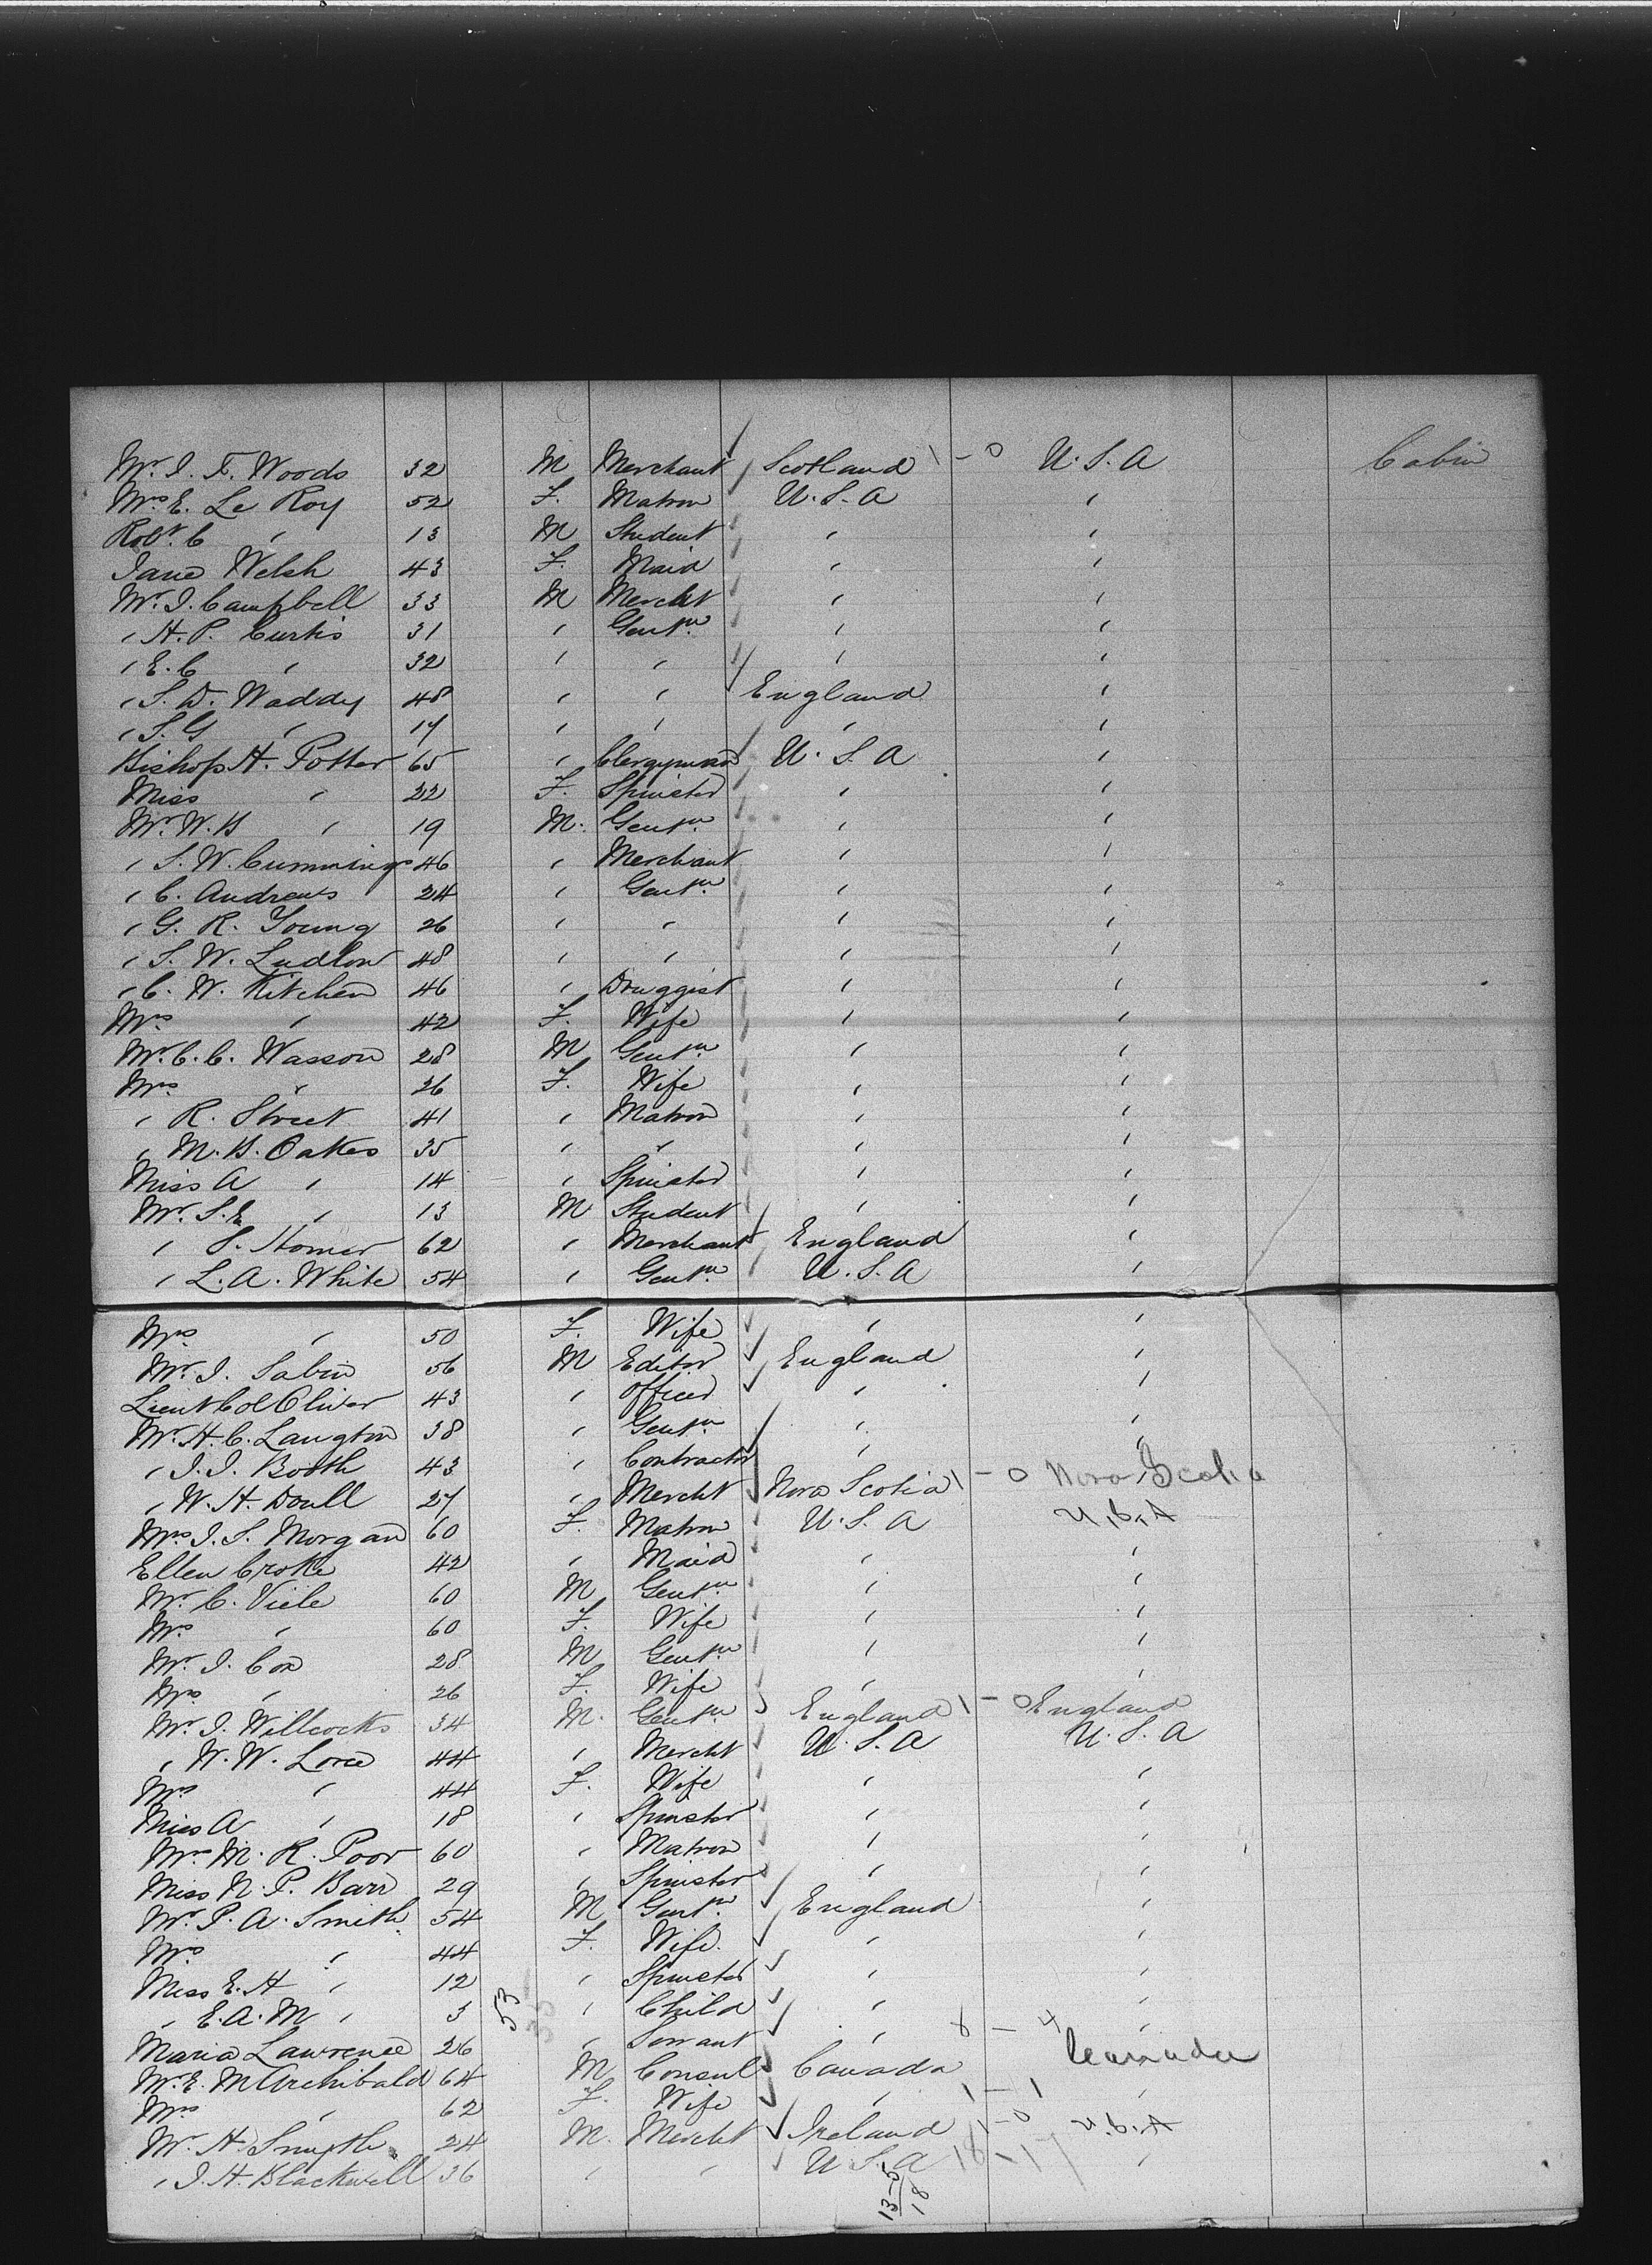 Mr. J. F. Woods 32 M Merchant Scotland 1 - 0 U.S.A Cabin
Mrs. E. Le Roy 52 F. Matron U.S.A "
Robt. C " 13 M Student " "
Jane Welsh 43 F. Maid " "
Mr. J. Campbell 33 M Mercht " "
" H. P. Curtis 31 " Gentn. " "
" E. C " 32 " " " "
" S. D. Waddy 48 " " England "
" S. G " 17 " " " "
Bishop H. Potter 65 " Clergyman U.S.A "
Miss " 22 F. Spinster " "
Mr. W. B " 19 M. Gentn. " "
" S. W. Cummings 46 " Merchant " "
" C. Andrews 24 " Gentn. " "
" G. R. Young 26 " " " "
" S. W. Ludlow 48 " " " "
" C. W. Kitchen 46 " Druggist " "
Mrs. " 42 F. Wife " "
Mr. C. C. Wasson 28 M Gentn. " "
Mrs. " 26 F. Wife " "
" R. Street 41 " Matron " "
" M. B. Oakes 35 " " " "
Miss A " 14 " Spinster " "
Mr. S. E " 13 M Student " "
" S. Homer 62 " Merchant England "
" L. A. White 54 " Gentn. U.S.A "
Mrs. " 50 F. Wife " "
Mr. J. Sabin 56 M Editor England "
Lieut Col Oliver 43 " Officer " "
Mr. H. C. Langton 38 " Gentn. " "
" J. J. Booth 43 " Contractor " "
" W. H. Doull 27 " Mercht Nova Scotia 1 - 0 Nova Scotia
Mrs. J. S. Morgan 60 F. Matron U.S.A U.S.A
Ellen Croke 42 " Maid " "
Mr. C. Viele 60 M Gentn. " "
Mrs. " 60 F. Wife " "
Mr. J. Cox 28 M Gentn. " "
Mrs. " 26 F. Wife " "
Mr. J. Willcocks 34 M. Gentn England 1 - 0 England
" W. W. Lord 44 " Mercht U.S.A U.S.A
Mrs. " 44 F. Wife " "
Miss A " 18 " Spinster " "
Mrs. M. R. Poor 60 " Matron " "
Miss N. P. Barr 29 " Spinster " "
Mr. P. A. Smith 54 M Gentn. England "
Mrs. " 44 F. Wife. " "
Miss E. H " 12 " Spinster " "
" E. A. M " 3 53 " Child " "
Maria Lawrence 26 " Servant " 8 - 4 "
Mr. E. M Archibald 64 M Consul Canada Canada
Mrs. " 62 F. Wife " 1 - 1 "
Mr. H Smyth 24 M. Mercht Ireland 1 - 0 U.S.A
" J. H. Blackwell 36 " " U.S.A 18 - 17 "
13-5
18